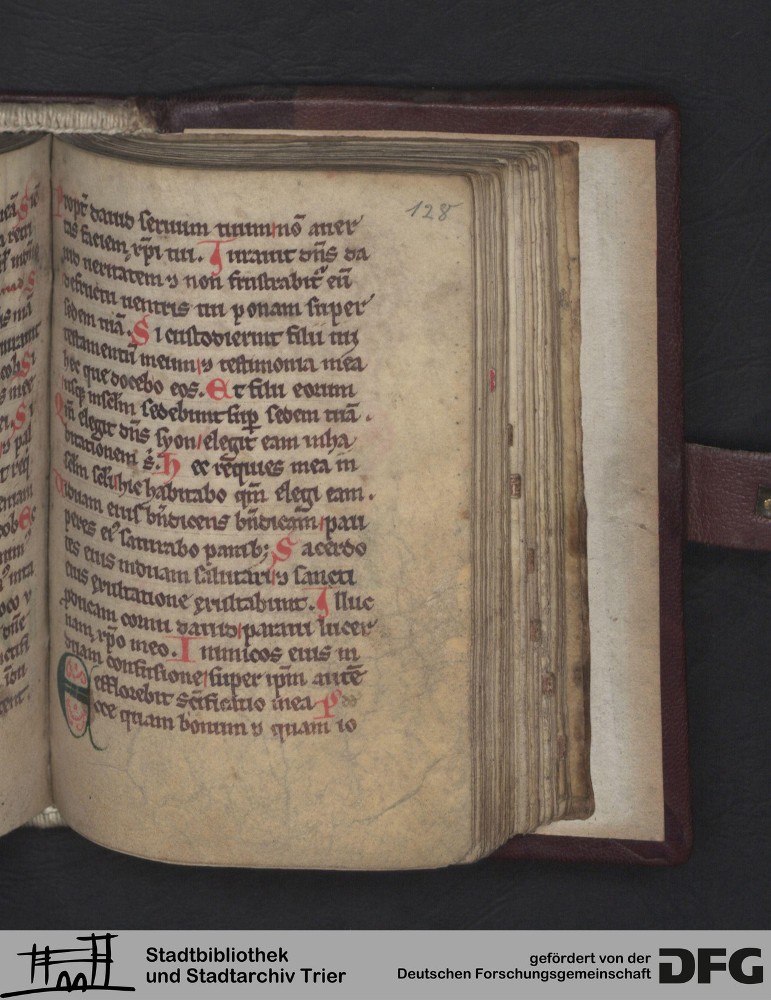 128
Propt̄ dauid seruum tuum nō auer
tas faciem xp̄i tui. Iurauit dn̄s da
uid ueritatem ⁊ non frustrabit̄ eū
defructu uentris tui ponam super
sedem tuā. Si custodierint filii tui
testamentū meum ⁊ testimonia mea
hec que docebo eos. Et filii eorum
usq; insclm̄ sedebunt sup̄ sedem tuā.
Qm̄ elegit dn̄s syon elegit eam inha
bitationem s̄. Hec req̄ies mea in
sclm̄ scli hic habitabo qm̄ elegi eam.
Uiduam eius bn̄dicens bn̄dicam pau
peres ei᷒ saturabo panib; Sacerdo
tes eius induam salutari ⁊ sancti
eius exultatione exultabunt. Illuc
ponam cornu dauid paraui lucer
nam xp̄o meo. Inimicos eius in
duam confusione super ip̄m autē
efflorebit sc̄ificatio mea. P
Ecce quam bonum ⁊ quam io
Stadtbibliothek
und Stadtarchiv Trier
gefördert von der
Deutschen Forschungsgemeinschaft
DFG